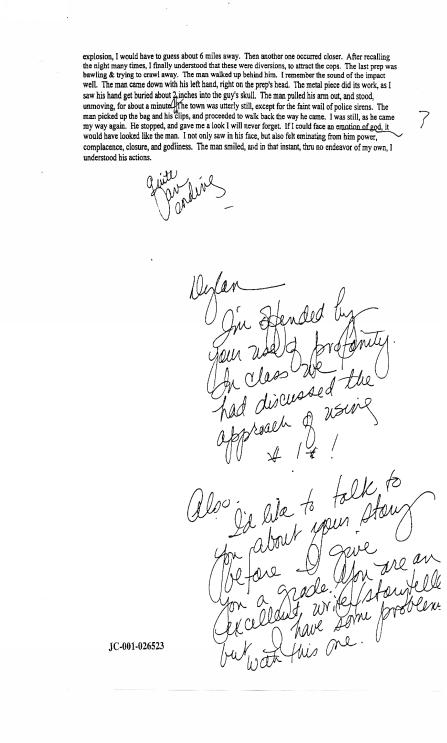 explosion, I would have to guess about 6 miles away. Then another one occurred closer. After recalling
the night many times, I finally understood that these were diversions, to attract the cops. The last prep was
bawling & trying to crawl away. The man walked up behind him. I remember the sound of the impact
well. The man came down with his left hand, right on the prep's head. The metal piece did its work, as I
saw his hand get buried about 2 inches into the guy's skull. The man pulled his arm out, and stood,
unmoving, for about a minute. The town was utterly still, except for the faint wail of police sirens. The
man picked up the bag and his clips, and proceeded to walk back the way he came. I was still, as he came
my way again. He stopped, and gave me a look I will never forget. If I could face an emotion of god, it
would have looked like the man. I not only saw in his face, but also felt eminating from him power,
complacence, closure, and godliness. The man smiled, and in that instant, thru no endeavor of my own, I
understood his actions.
?
quite
an
ending
Dylan
I'm offended by
your use of profanity.
In class we
had discussed the
approach of using
# ! * !
Also.
I'd like to talk to
you about your story
before I give
you a grade. You are an
excellent writer/storytelle
but I have some problem
with this one.
JC-001-026523